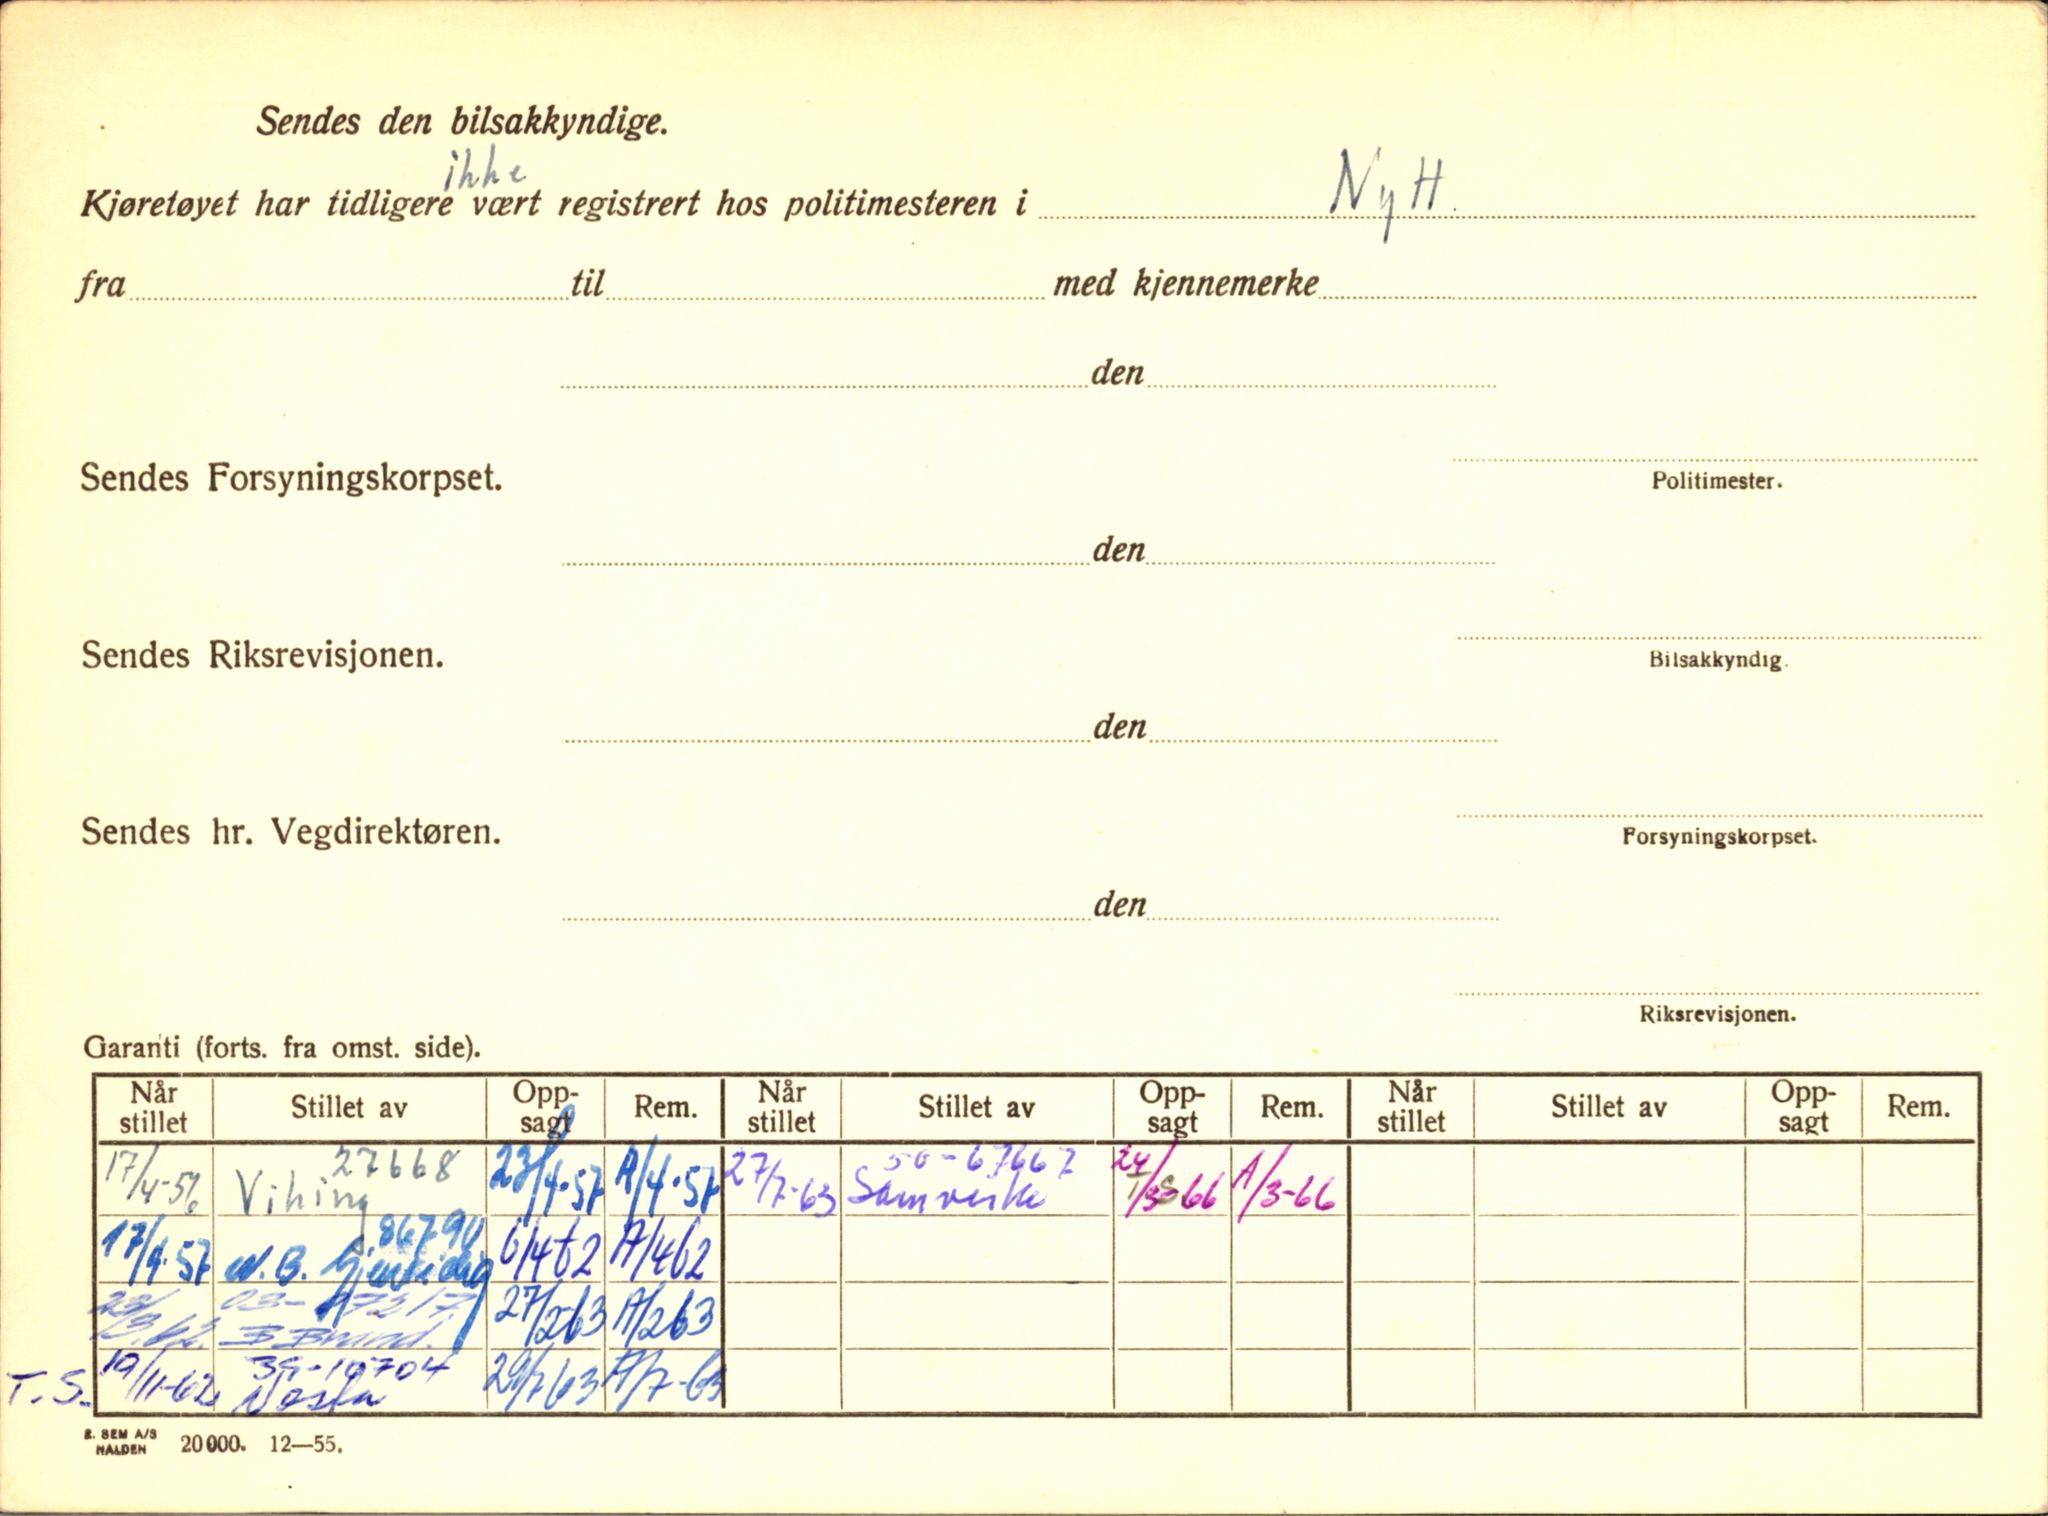 Sendes den bilsakkyndige.
ikke
Kjøretøyet har tidligere vært registrert hos politimesteren i Nytt.
fra til med kjennemerke
den
Sendes Forsyningskorpset.
Politimester.
den
Sendes Riksrevisjonen.
Bilsakkyndig.
den
Sendes hr. Vegdirektøren.
Forsyningskorpset.
den
Riksrevisjonen.
Garanti (forts. fra omst. side).
Når stillet Stillet av Opp-sagt Rem. Når stillet Stillet av Opp-sagt Rem. Når stillet Stillet av Opp-sagt Rem.
17/4-56 Viking 27668 23/4-57 A/4-57 27/7-63 50-67667 Samvirke 24/3-66 A/3-66
17/4-57 86790 6/4 62 A/4 62
B Brand. 27/2 63 A/2 63
T.S. 19/11-62 Vesta 29/7 63 A/7-63
E. SEM A/S
HALDEN 20000. 12—55.